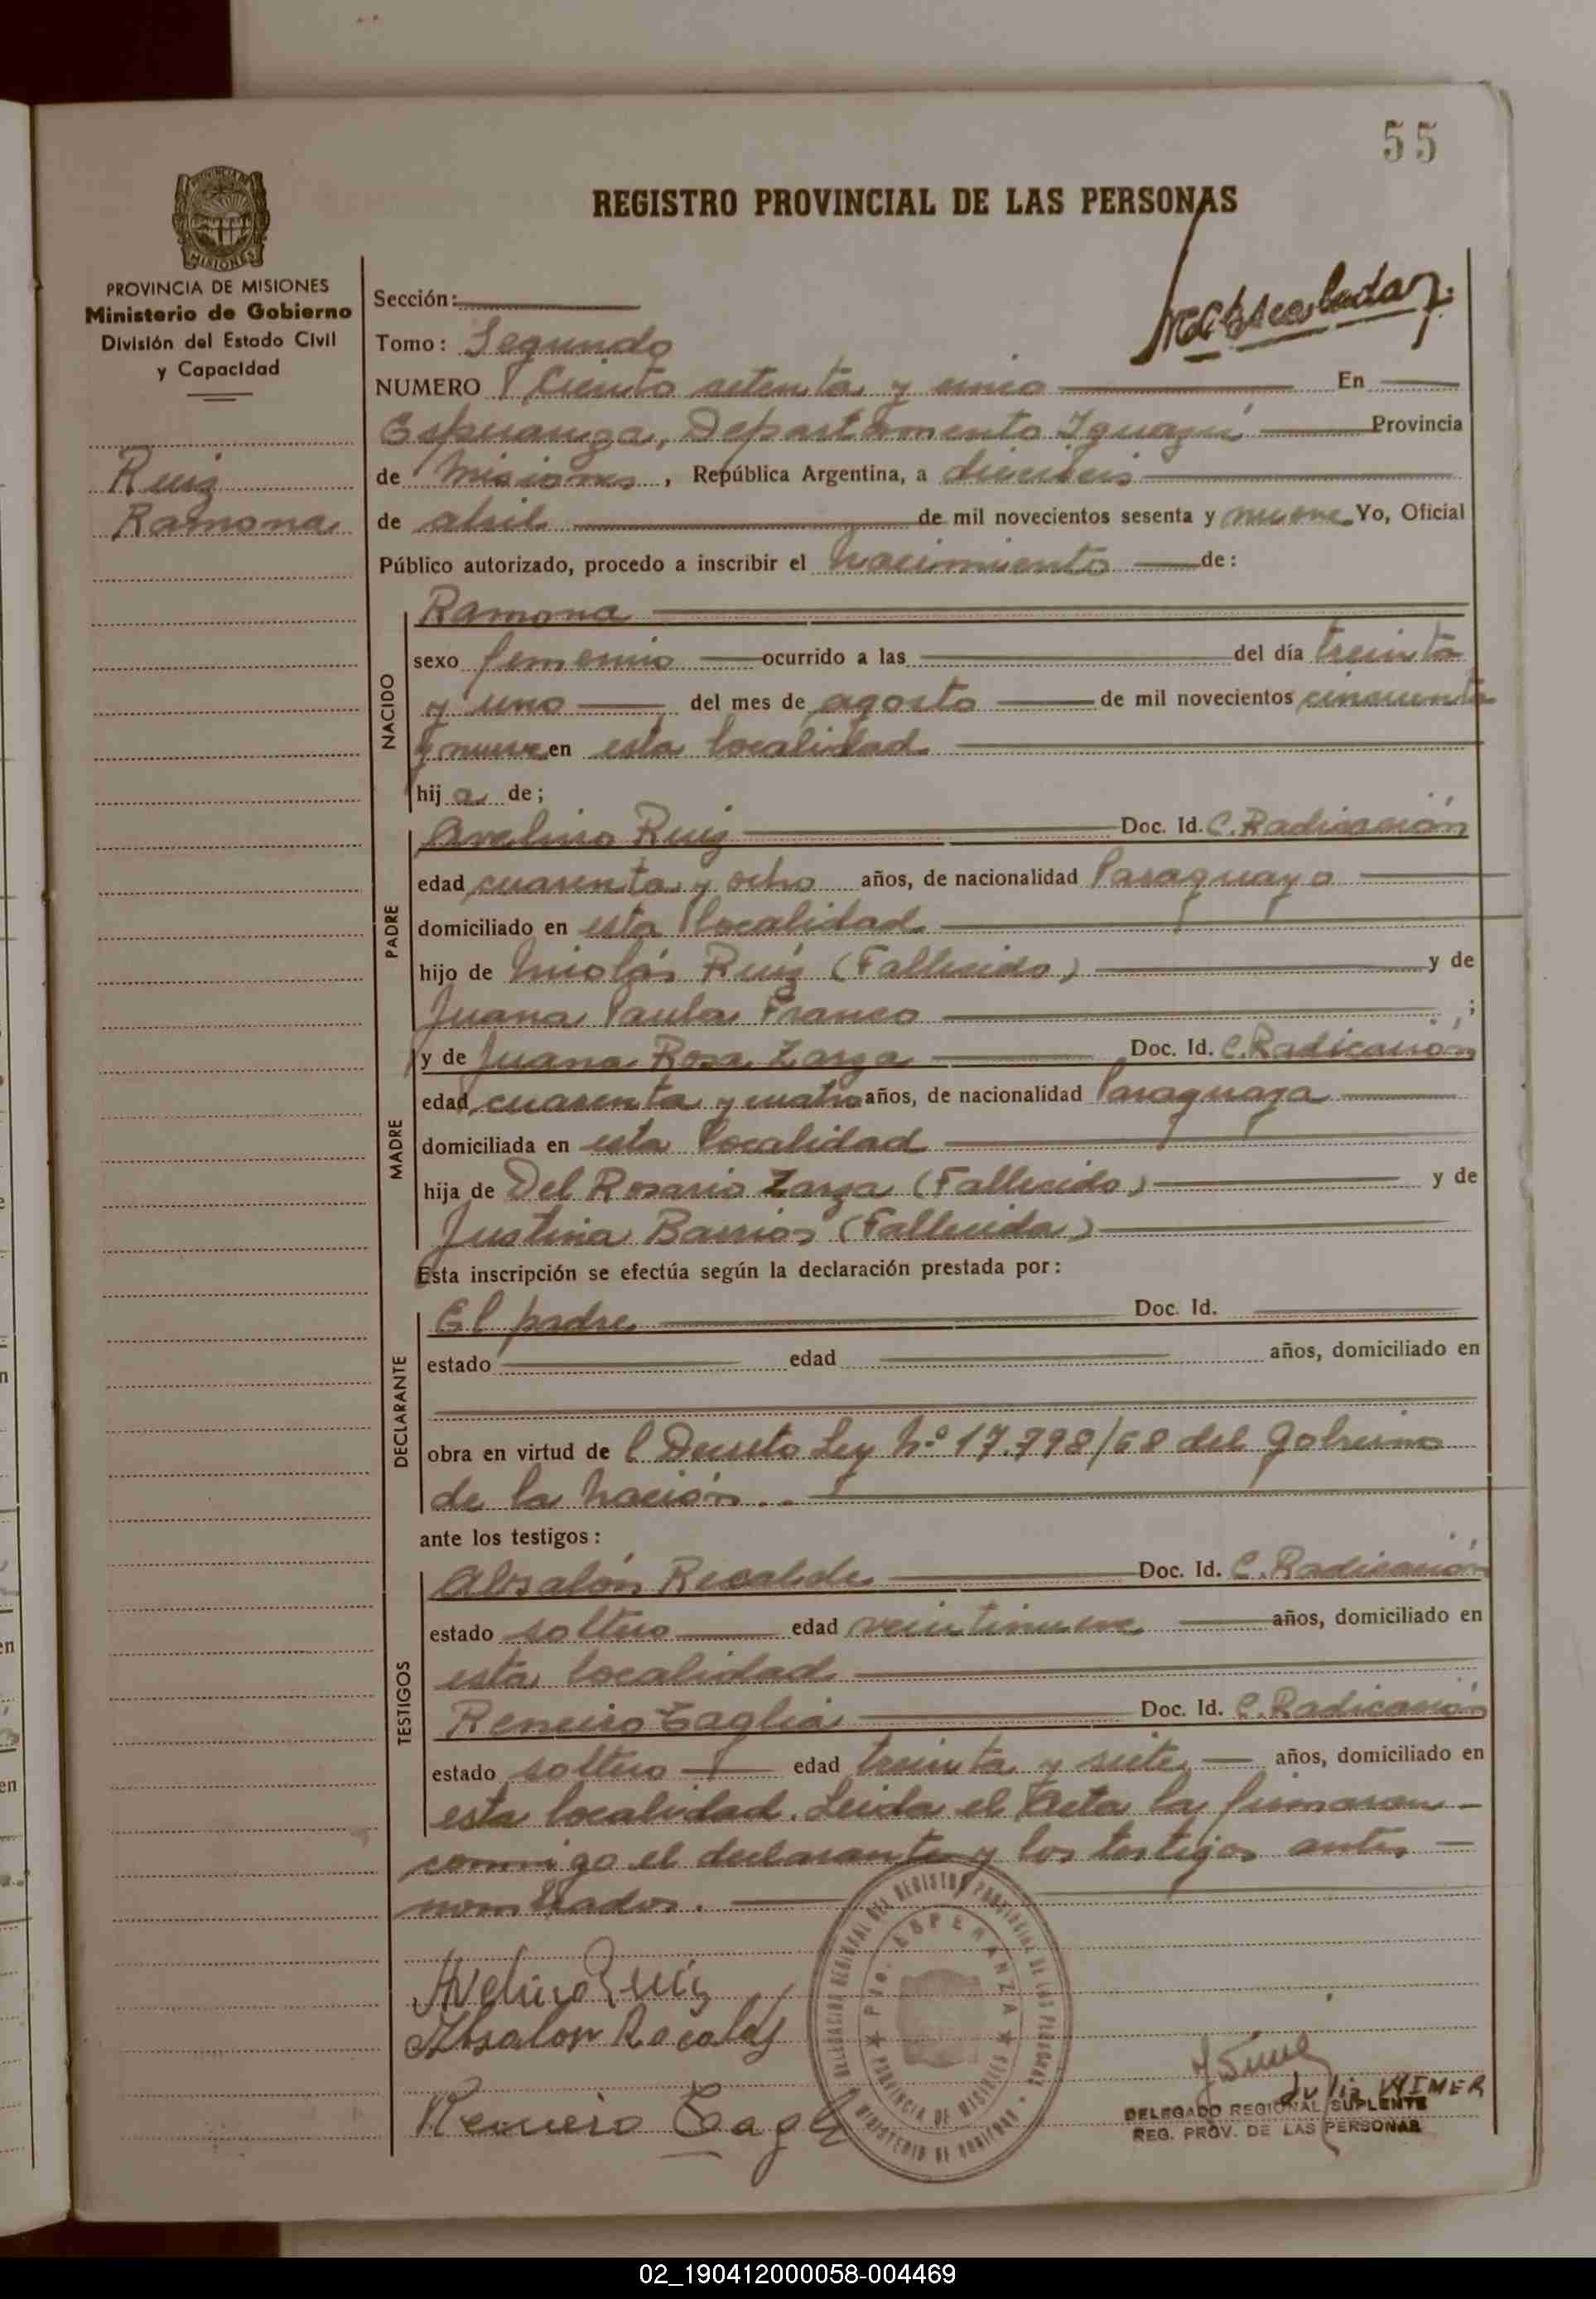 55
REGISTRO PROVINCIAL DE LAS PERSONAS
MISIONES
PROVINCIA DE MISIONES
Ministerio de Gobierno
División del Estado Civil
y Capacidad
Ruiz
Ramona
Sección:
Tomo: Segundo
NUMERO Ciento setenta y uno En
Esperanza, Departamento Iguazú Provincia
de Misiones, República Argentina, a dieciseis
de abril de mil novecientos sesenta y nueve Yo, Oficial
Público autorizado, procedo a inscribir el nacimiento de:
NACIDO
Ramona
sexo femenino ocurrido a las del día treinta
y uno del mes de agosto de mil novecientos cincuenta
y nueve en esta localidad
hij a de;
PADRE
Avelino Ruiz Doc. Id. C. Radicación
edad cuarenta y ocho años, de nacionalidad Paraguaya
domiciliado en esta localidad
hijo de Nicolás Ruiz (Fallecido) y de
Juana Paula Franco ;
MADRE
y de Juana Rosa Zarza Doc. Id. C. Radicación
edad cuarenta y cuatro años, de nacionalidad Paraguaya
domiciliada en esta localidad
hija de Del Rosario Zarza (Fallecido) y de
Justina Barrios (Fallecida)
Esta inscripción se efectúa según la declaración prestada por:
DECLARANTE
El padre Doc. Id.
estado edad años, domiciliado en
obra en virtud de l Decreto Ley Nº 17.798/68 del Gobierno
de la Nación..
ante los testigos:
TESTIGOS
Absalón Recalde Doc. Id. C. Radicación
estado soltero edad veintinueve años, domiciliado en
esta localidad
Doc. Id. C. Radicación
estado soltero edad treinta y siete años, domiciliado en
esta localidad. Leida el Acta la firmaron
conmigo el declarante y los testigos antes
nombrados.
Avelino Ruiz
Absalon Recalde
DELEGACION REGIONAL DEL REGISTRO PROVINCIAL DE LAS PERSONAS
Pto. ESPERANZA
PROVINCIA DE MISIONES
MINISTERIO DE GOBIERNO
WIMER
DELEGADO REGIONAL SUPLENTE
REG. PROV. DE LAS PERSONAS
02_190412000058-004469